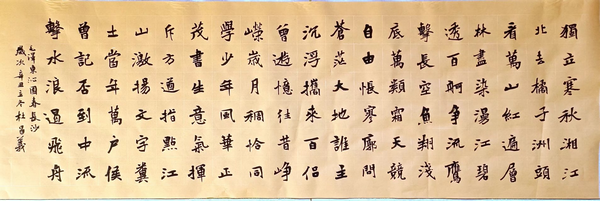 獨立寒秋湘江
北去橘子洲頭
看萬山紅遍層
林盡染漫江碧
透百舸爭流鷹
擊長空魚翔淺
底萬類霜天競
自由悵寥廓問
蒼茫大地誰主
沉浮攜來百侶
曾遊憶往昔崢
嶸歲月稠恰同
學少年風華正
茂書生意氣揮
斥方遒指點江
山激揚文字糞
土當年萬戶侯
曾記否到中流
擊水浪遏飛舟
毛澤東沁園春長沙
歲次辛丑立冬杜義